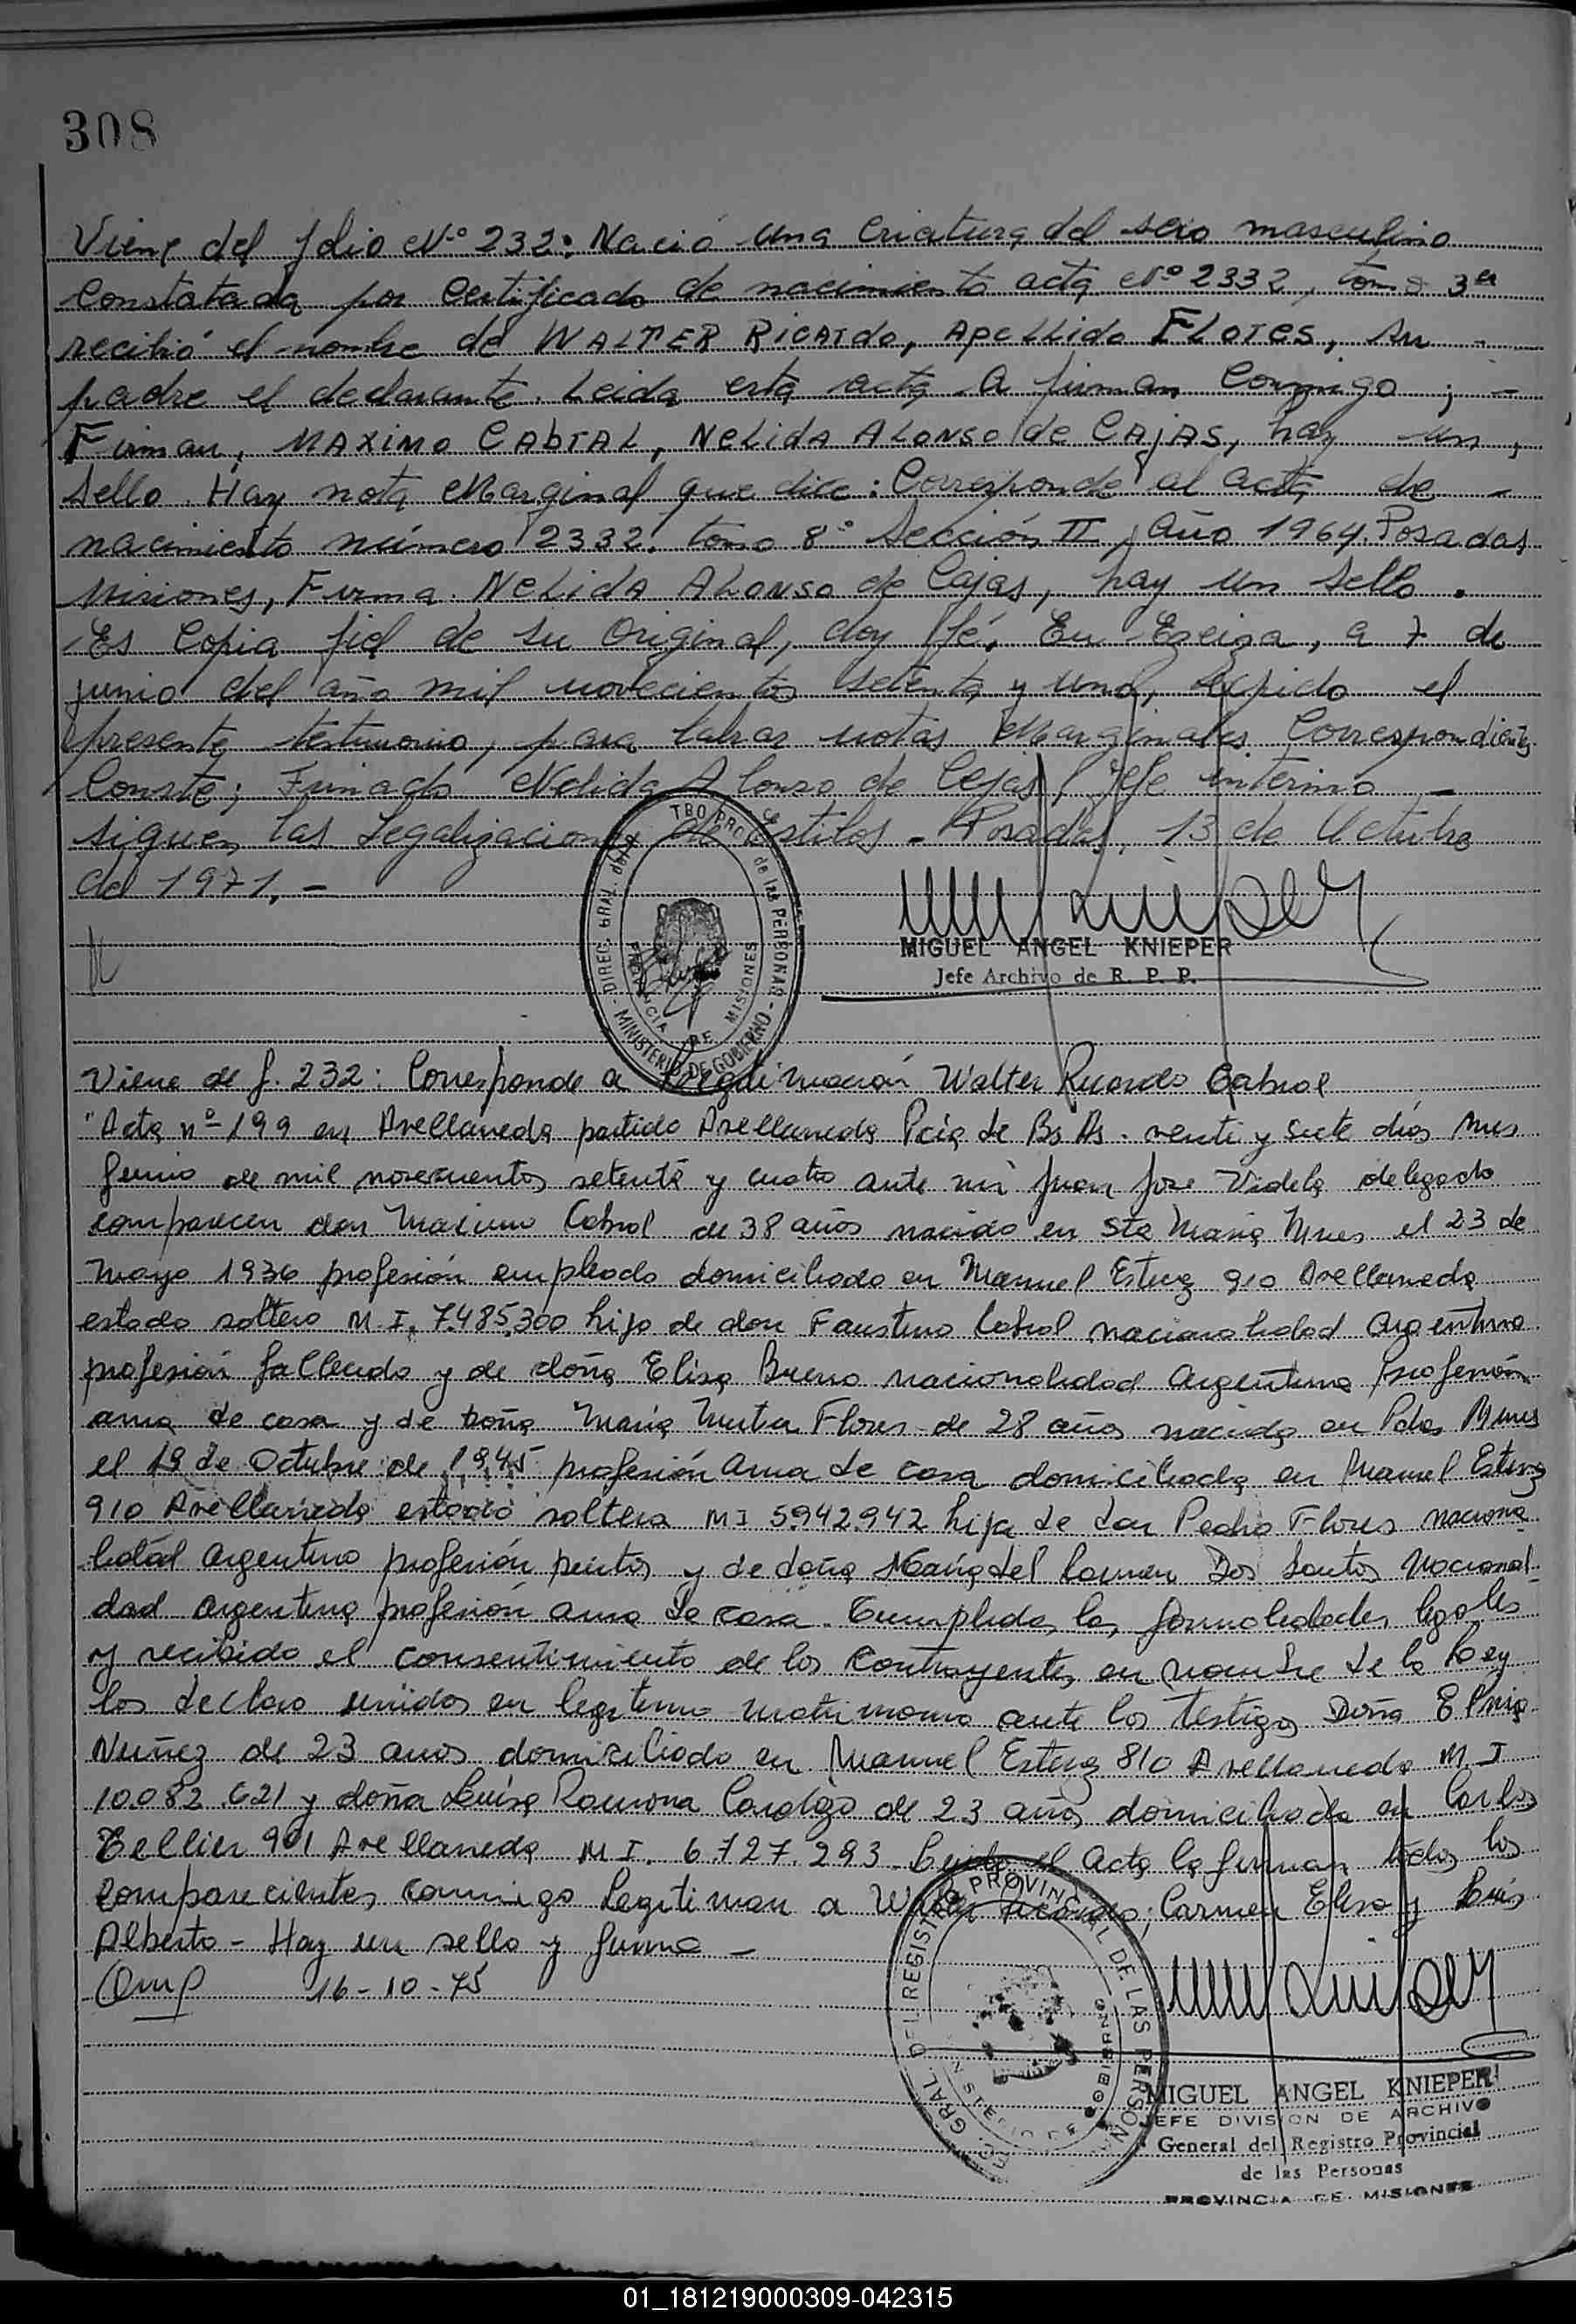 308
Viene del folio Nº 232: Nació una criatura del sexo masculino
Constatada por Certificado de nacimiento acta Nº 2332, tomo 3er
recibió el nombre de WALTER RICARDO, APELLIDO FLORES, su -
padre el declarante. Leida esta acta la firman Conmigo; -
Firman, MAXIMO CABRAL, NELIDA ALONSO de CAJAS, hay un,
sello. Hay nota Marginal que dice: Corresponde al acta de -
nacimiento número 2332. tomo 8º Sección II, Año 1964. Posadas
Misiones, Firma. NELIDA ALONSO de Cajas, hay un sello.
Es Copia fiel de su Original, doy fé. En Ezeiza, a 7 de
junio del año mil novecientos setenta y uno, expido el
presente testimonio, para labrar notas Marginales Correspondientes
Conste; Firmado Nelida Alonso de Cejas, Jefe interino -
siguen las Legalizaciones de estilos - Posadas, 13 de Octubre
del 1971. -
MIGUEL ANGEL KNIEPER
Jefe Archivo de R. P. P.
DIREC. GRAL. del TRO PROV. de las PERSONAS - MINISTERIO DE GOBIERNO -
PROVINCIA DE MISIONES
Viene de f. 232: Corresponde a Legitimación Walter Ricardo Cabral
"Acta nº 199 en Avellaneda partido Avellaneda Pcia de Bs As. venti y siete días mes
Junio de mil novecientos setenta y cuatro ante mi Juan Jose Videla delegado
comparecen don Maximo Cabral de 38 años nacido en Sta Maria Mnes el 23 de
Mayo 1936 profesión empleado domiciliado en Manuel Estevez 910 Avellaneda
estado soltero M.I. 7.485.300 hijo de don Faustino Cabral nacionalidad argentino
profesión fallecido y de doña Elisa Bueno nacionalidad argentina profesión
ama de casa y de doña Maria Flores de 28 años nacida en Pdas Mnes
el 19 de Octubre de 1945 profesión ama de casa domiciliada en Manuel Estevez
910 Avellaneda estado soltera MI 5.942.942 hija de don Pedro Flores naciona
lidad argentino profesión pintor y de doña Maria del Carmen Dos Santos Nacionali
dad argentina profesión ama de casa. Cumplidas las formalidades legales
y recibido el consentimiento de los contrayentes en nombre de la Ley
los declaro unidos en legitimo matrimonio ante los testigos Doña
Nuñez de 23 anos domiciliado en Manuel Estevez 810 Avellaneda M.I
10.082.621 y doña Luisa Ramona Cardozo de 23 años domiciliada en Carlos
Tellier 901 Avellaneda M.I. 6.727.293. Leida el acta la firman todos los
comparecientes conmigo Legitiman a Walter Ricardo; Carmen Elisa y Luis
Alberto - Hay un sello y firma -
16-10-75
GRAL. DEL REGISTRO PROVINCIAL DE LAS PERSONAS
MIGUEL ANGEL KNIEPER
JEFE DIVISION DE ARCHIVO
General del Registro Provincial
de las Personas
PROVINCIA DE MISIONES
01_181219000309-042315